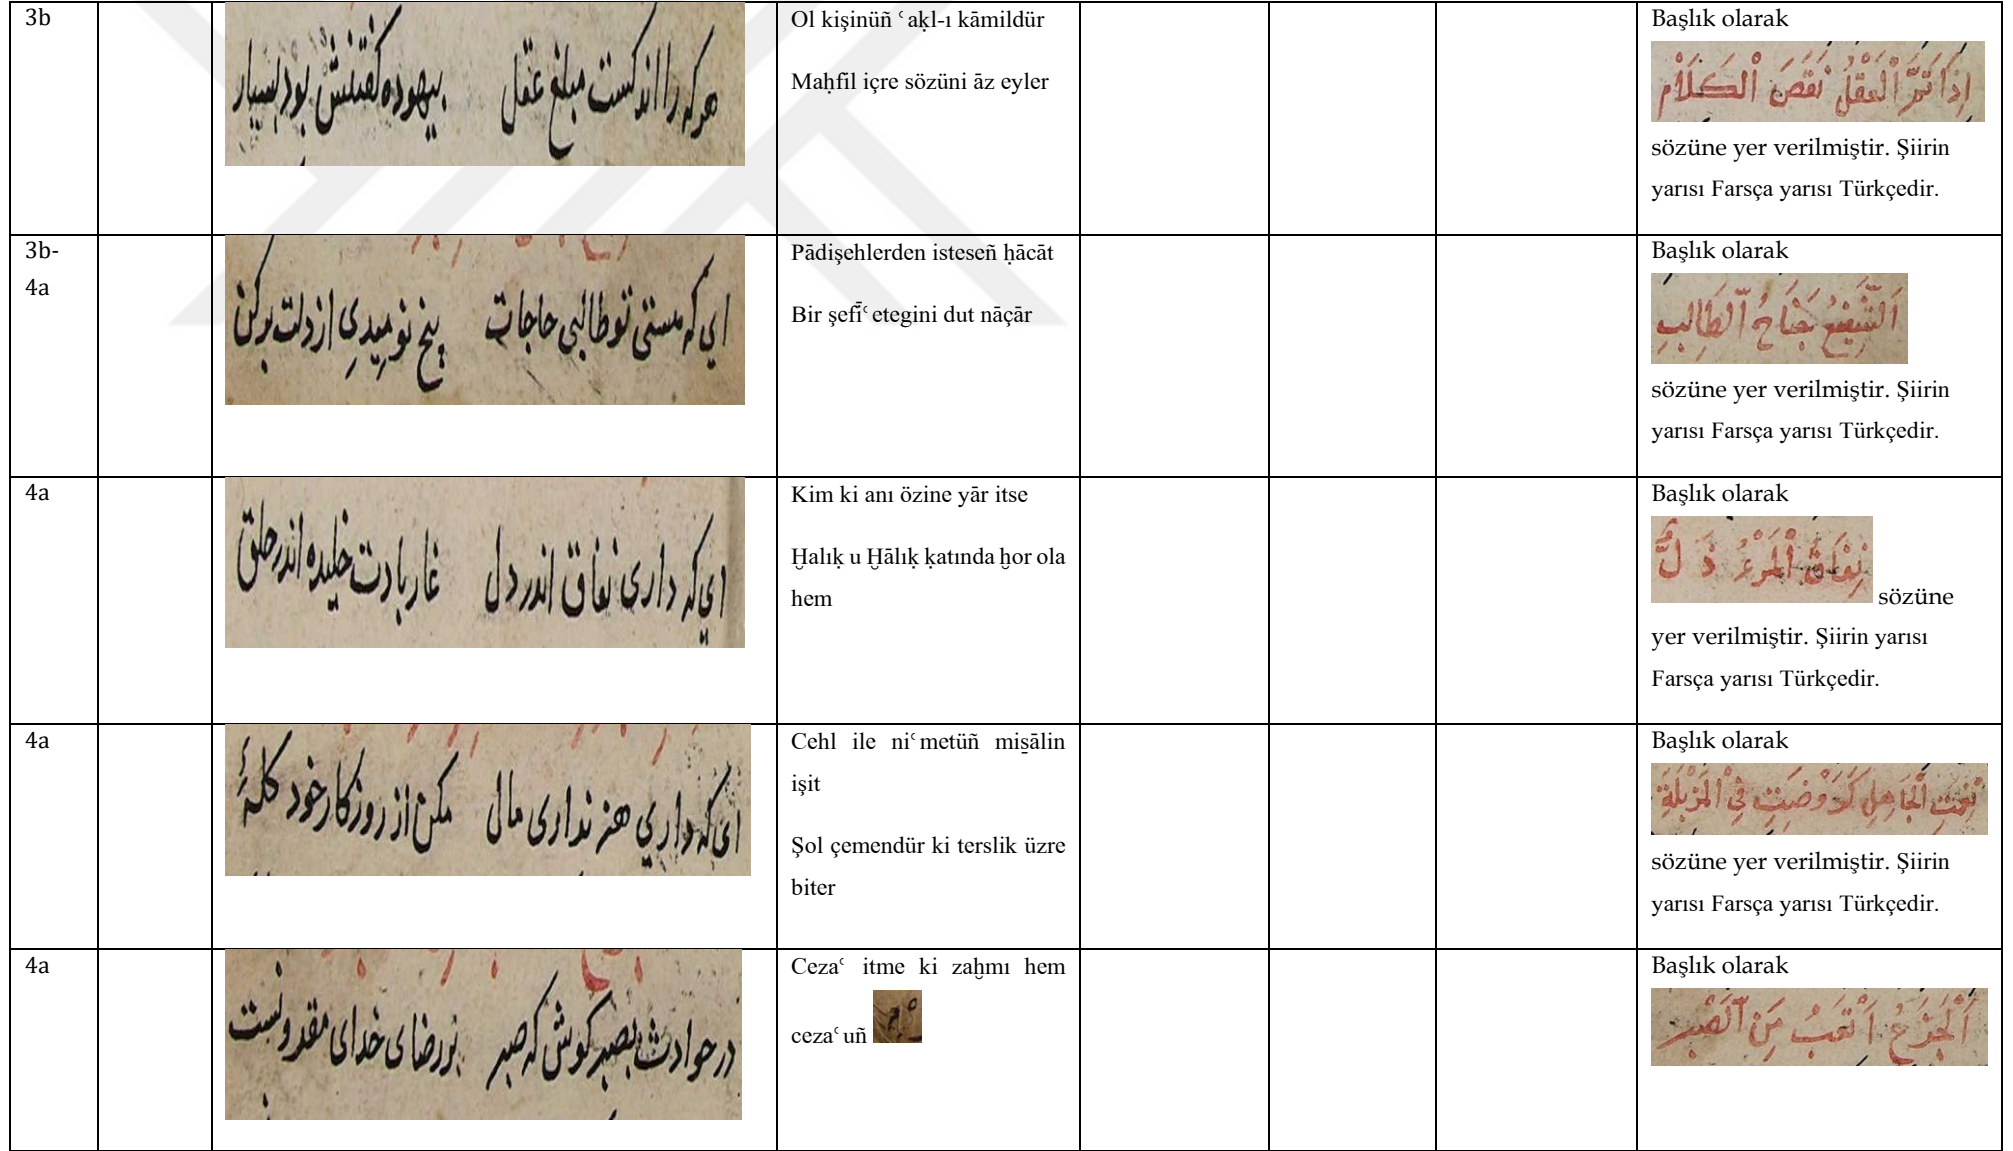 3b
هر که را اندکست مبلغ عقل بیهوده کفتنش بود بسیار
Ol kişinüñ ʿaḳl-ı kāmildür
Maḥfil içre sözüni āz eyler
Başlık olarak
اِذَا تَمَّ الْعَقْلُ نَقَصَ الْكَلَامُ
sözüne yer verilmiştir. Şiirin
yarısı Farsça yarısı Türkçedir.
3b-
4a
ای که هستی تو طالبی حاجات بیخ نومیدیِ از دلت برکن
Pādişehlerden isteseñ ḥācāt
Bir şefīʿ etegini dut nāçār
Başlık olarak
اَلشَّفِيعُ جَنَاحُ الطَّالِبِ
sözüne yer verilmiştir. Şiirin
yarısı Farsça yarısı Türkçedir.
4a
ای که داری نفاق اندر دل خار بادت خلیده اندر حلق
Kim ki anı özine yār itse
Ḫalıḳ u Ḫālıḳ ḳatında ḫor ola
hem
Başlık olarak
نِفَاقُ الْمَرْءِ ذَ لُّ
sözüne
yer verilmiştir. Şiirin yarısı
Farsça yarısı Türkçedir.
4a
ای که داری هنر نداری مال مکن از روزکار خود کلهٔ
Cehl ile niʿmetüñ mis̱ālin
işit
Şol çemendür ki terslik üzre
biter
Başlık olarak
نِعْمَتِ الْجَاهِلِ كَرَوْضَتِ فِي الْمَزْبَلَةِ
sözüne yer verilmiştir. Şiirin
yarısı Farsça yarısı Türkçedir.
4a
در حوادث بصبر کوش که صبر برضای خدای مقدونست
Cezaʿ itme ki zaḫmı hem
cezaʿuñ
Başlık olarak
اَلْجَزَعُ اَتْعَبُ مِنَ الصَّبْرِ